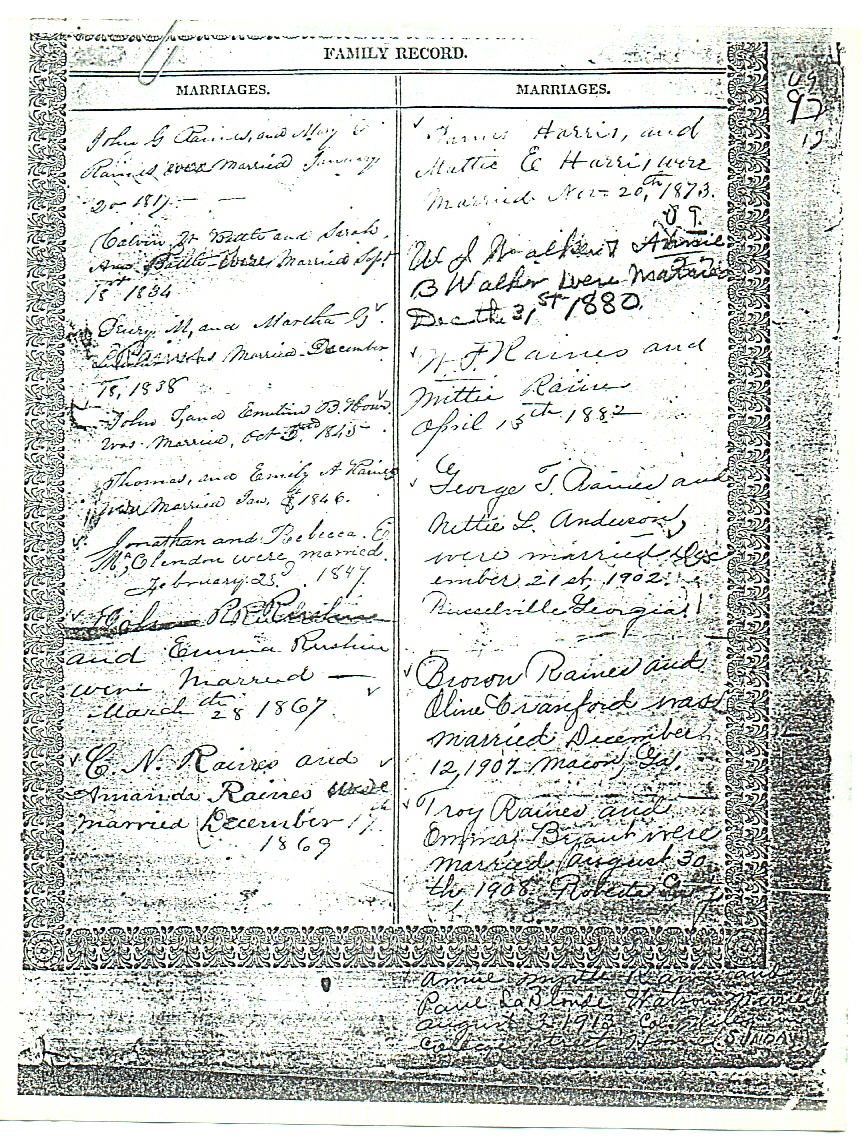 FAMILY RECORD.
MARRIAGES.
John G Raines, and Mary
Raines, were Married January
20 1817
Calvin and Sarah
Ann Battle were Married Sept
18st 1834
Henry M, and Martha G
was Married December
18, 1838
John T, and Emeline B.
was Married, Oct 1845
Thomas, and Emily A Raines
were Married Jan, 1846.
Jonathan and Rebecca E
Mc,Clendon were married
February 23d 1847
and Emma Rushin
were Married
March 28th 1867
C. N. Raines and
Amanda Raines were
married December 17th
1869
MARRIAGES.
James Harris, and
Mattie E Harris, were
Married Nov 20th, 1873.
W J Walker & Annie
B Walker were Married
Dec the 31st 1880.
W. F. Raines and
Mittie Raines
April 15th 1882
George T. Raines and
Nettie L. Anderson,
were married Dec
ember 21st 1902.
Russelville Georgia
Brown Raines and
Oline Cranford was
married December
12, 1907 Macon, Ga.
Troy Raines and
Emma Bryant were
married August 30
th, 1908. Roberta
Annie Myrtle and
Paul Watson Married
August 1913
(SUNDAY)
97
12